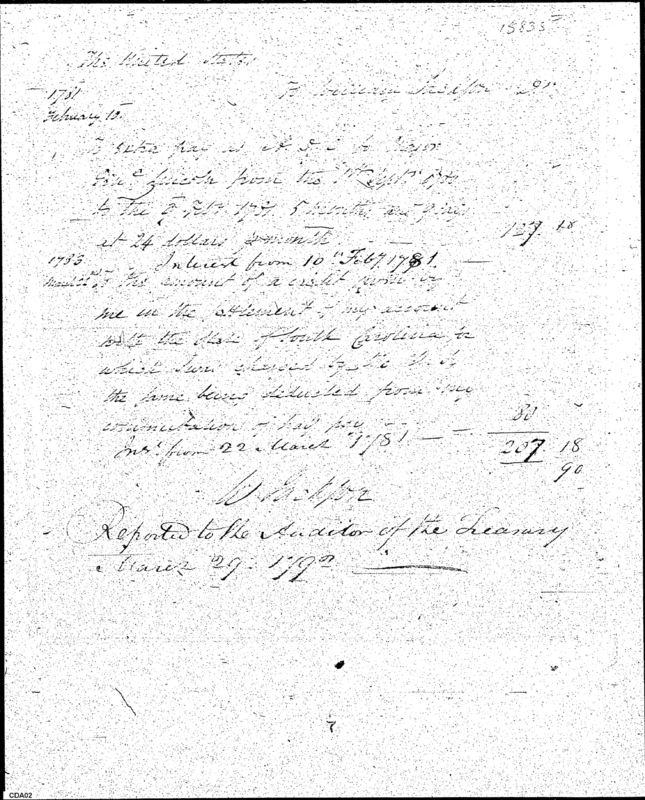 15835
The United States
To William Jackson Dr.
1781
February 10.
To extra pay as A. D. C. to Major
Genl. Lincoln from the 1st Septr.
to the 9 Feby. 1781 5 months and 9 days
at 24 dollars month — 127. 18
Interest from 10th Feby. 1781. —
1783
To the amount of a credit given by
me in the settlement of my account
with the State of South Carolina, for
which I was charged by the U. S.
the same being deducted from my
commutation of half pay — 80
Intt. from 22 March 1781 — 207 18
90
W. Jackson
Reported to the Auditor of the Treasury
March 29. 1792
7
CDA02